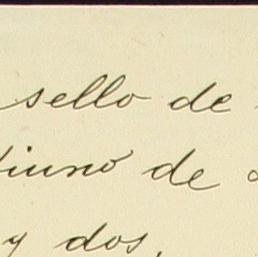 sello de
tiuno de
y dos,